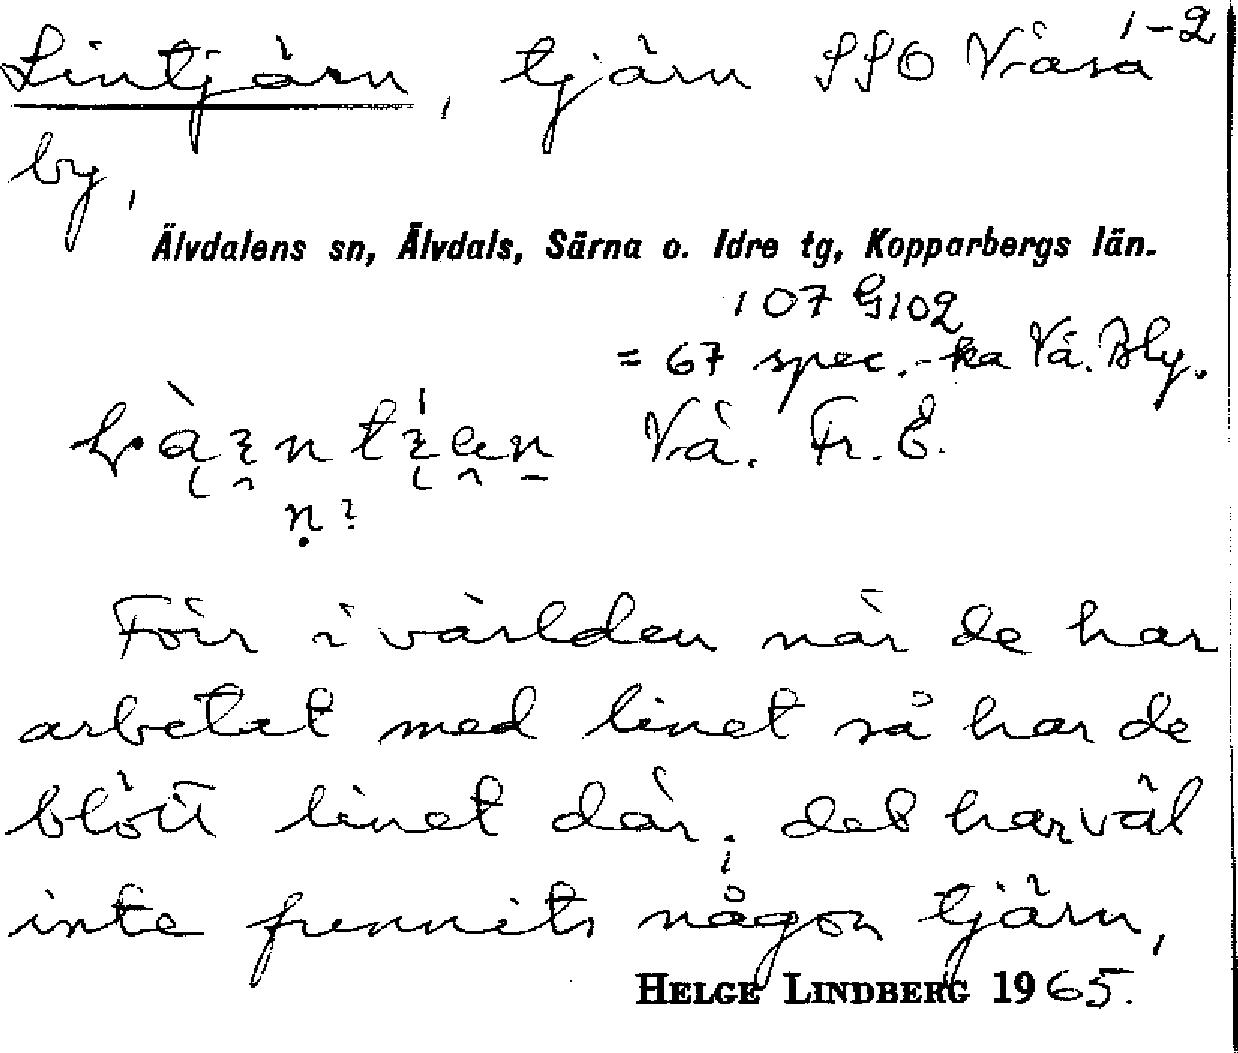 1-2
Lintjärn, tjärn SSO Våsa
by,
Älvdalens sn, Älvdals, Särna o. Idre tg, Kopparbergs län.
107 G102
= 67 spec.-ka Vå. Bly.
Vå. Fr. E.
n?
Förr i världen när de har
arbetat med linet så har de
blött linet där; det har väl
inte funnits någon tjärn,
HELGE LINDBERG 1965.